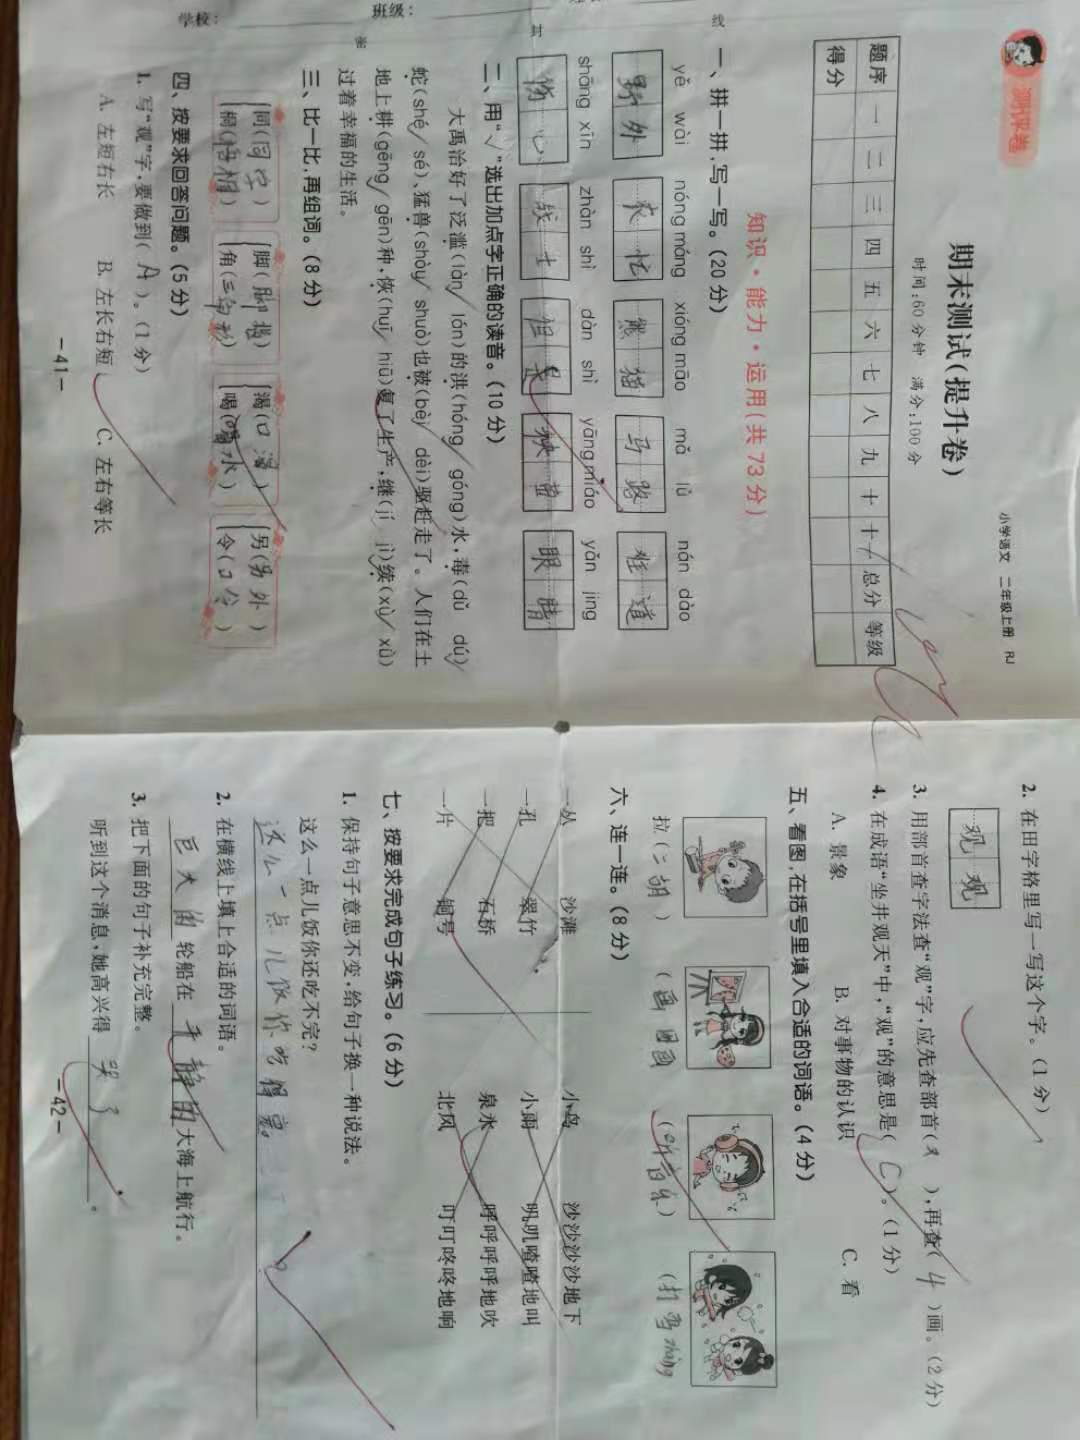 学校：
班级：
密
封
线
测评卷
期末测试(提升卷)
小学语文 二年级上册 RJ
时间:60分钟 满分:100分
题序 一 二 三 四 五 六 七 八 九 十 十一 总分 等级
得分
知识·能力·运用(共73分)
一、拼一拼,写一写。(20分)
yě wài nóng máng xióng māo mǎ lù nán dào
野外 农忙 熊猫 马路 难道
shāng xīn zhàn shì dàn shì yāng miáo yǎn jing
伤心 战士 但是 秧苗 眼睛
二、用“√”选出加点字正确的读音。(10分)
大禹治好了泛滥(làn lán)的洪(hóng góng)水,毒(dǔ dú)
蛇(shé sé)、猛兽(shòu shuò)也被(bèi dèi)驱赶走了。人们在土
地上耕(gēng gēn)种,恢(huī hiū)复了生产,继(jí jì)续(xù xǜ)
过着幸福的生活。
三、比一比,再组词。(8分)
同(同学) 脚(脚指) 渴(口渴) 另(另外)
桐(梧桐) 角(三角形) 喝(喝水) 令(口令)
四、按要求回答问题。(5分)
1. 写“观”字,要做到( A )。(1分)
A. 左短右长 B. 左长右短 C. 左右等长
—41—
2. 在田字格里写一写这个字。(1分)
观观
3. 用部首查字法查“观”字,应先查部首(又),再查(4)画。(2分)
4. 在成语“坐井观天”中,“观”的意思是( C )。(1分)
A. 景象 B. 对事物的认识 C. 看
五、看图,在括号里填入合适的词语。(4分)
拉(二胡) (画图画) (听音乐) (打雪zhàng
六、连一连。(8分)
一丛 沙滩 小鸟 沙沙沙沙地下
一孔 翠竹 小雨 叽叽喳喳地叫
一把 石桥 泉水 呼呼呼呼地吹
一片 铜号 北风 叮叮咚咚地响
七、按要求完成句子练习。(6分)
1. 保持句子意思不变,给句子换一种说法。
这么一点儿饭你还吃不完?
这么一点儿饭你吃得完。
2. 在横线上填上合适的词语。
巨大的轮船在平静的大海上航行。
3. 把下面的句子补充完整。
听到这个消息,她高兴得哭了。
—42—